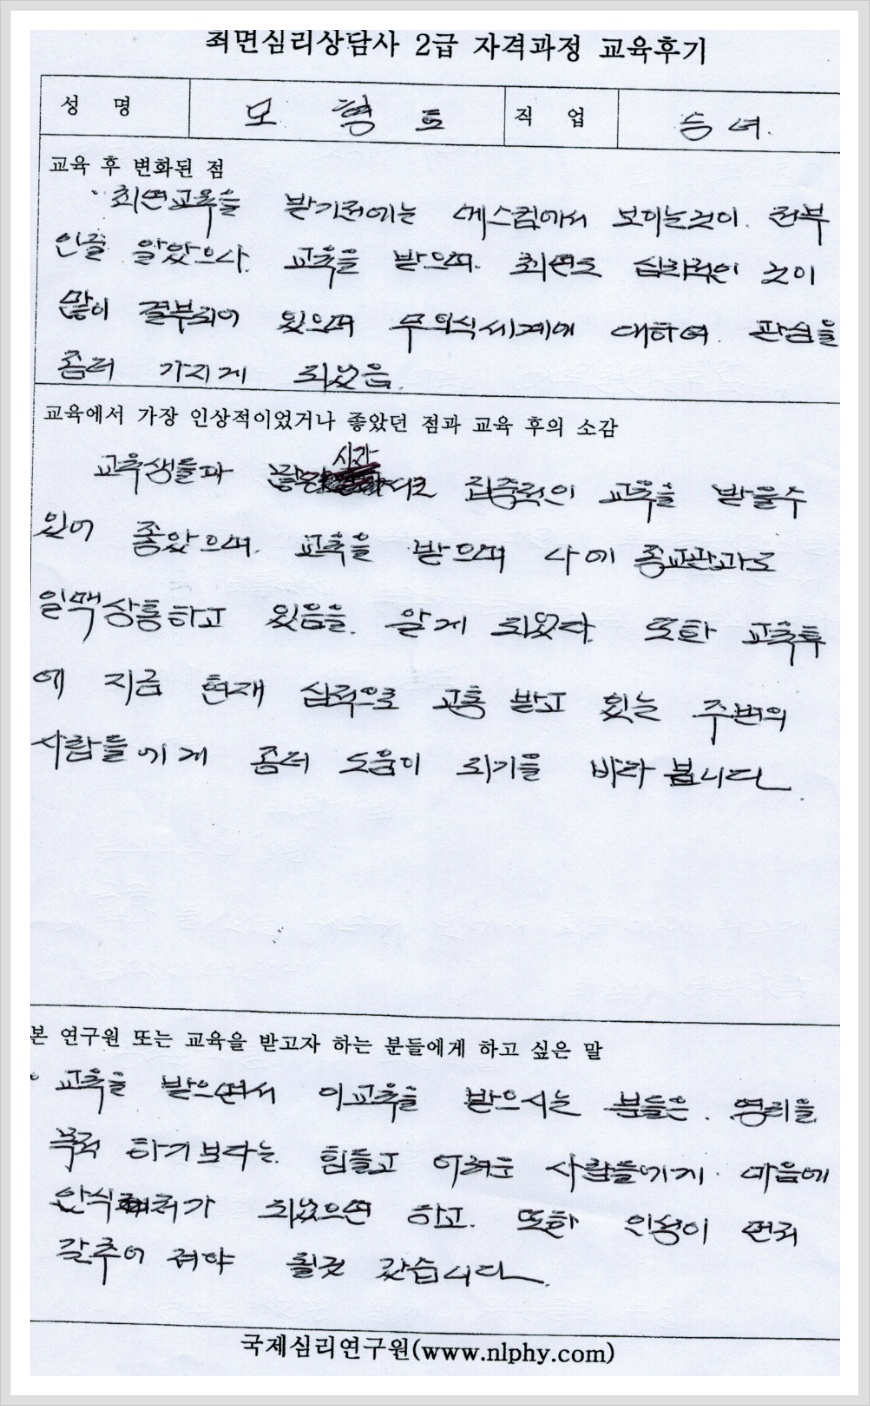 최면심리상담사 2급 자격과정 교육후기
성 명 모 형 호 직 업 승 녀.
교육 후 변화된 점
최면교육을 받기전에는 메스컴에서 보이는것이. 전부
인줄 알았으나. 교육을 받으며. 최면도 심리적인 것이
많이 결부되어 있으며 무의식세계에 대하여. 관심을
좀더 가지게 되었음.
교육에서 가장 인상적이었거나 좋았던 점과 교육 후의 소감
교육생들과 시간 집중적인 교육을 받을수
있어 좋았으며. 교육을 받으며 나에 종교관과도
일맥상통하고 있음을. 알게 되었다 또한 교육후
에 지금 현재 심적으로 고통 받고 있는 주변의
사람들에게 좀더 도움이 되기를 바라 봅니다.
본 연구원 또는 교육을 받고자 하는 분들에게 하고 싶은 말
교육을 받으면서 이교육을 받으시는 분들은. 영리를
목적 하기보다는. 힘들고 어려운 사람들에게. 마음에
안식처가 되었으면 하고. 또한 인성이 먼저
갖추어 져야 될것 같습니다.
국제심리연구원(www.nlphy.com)